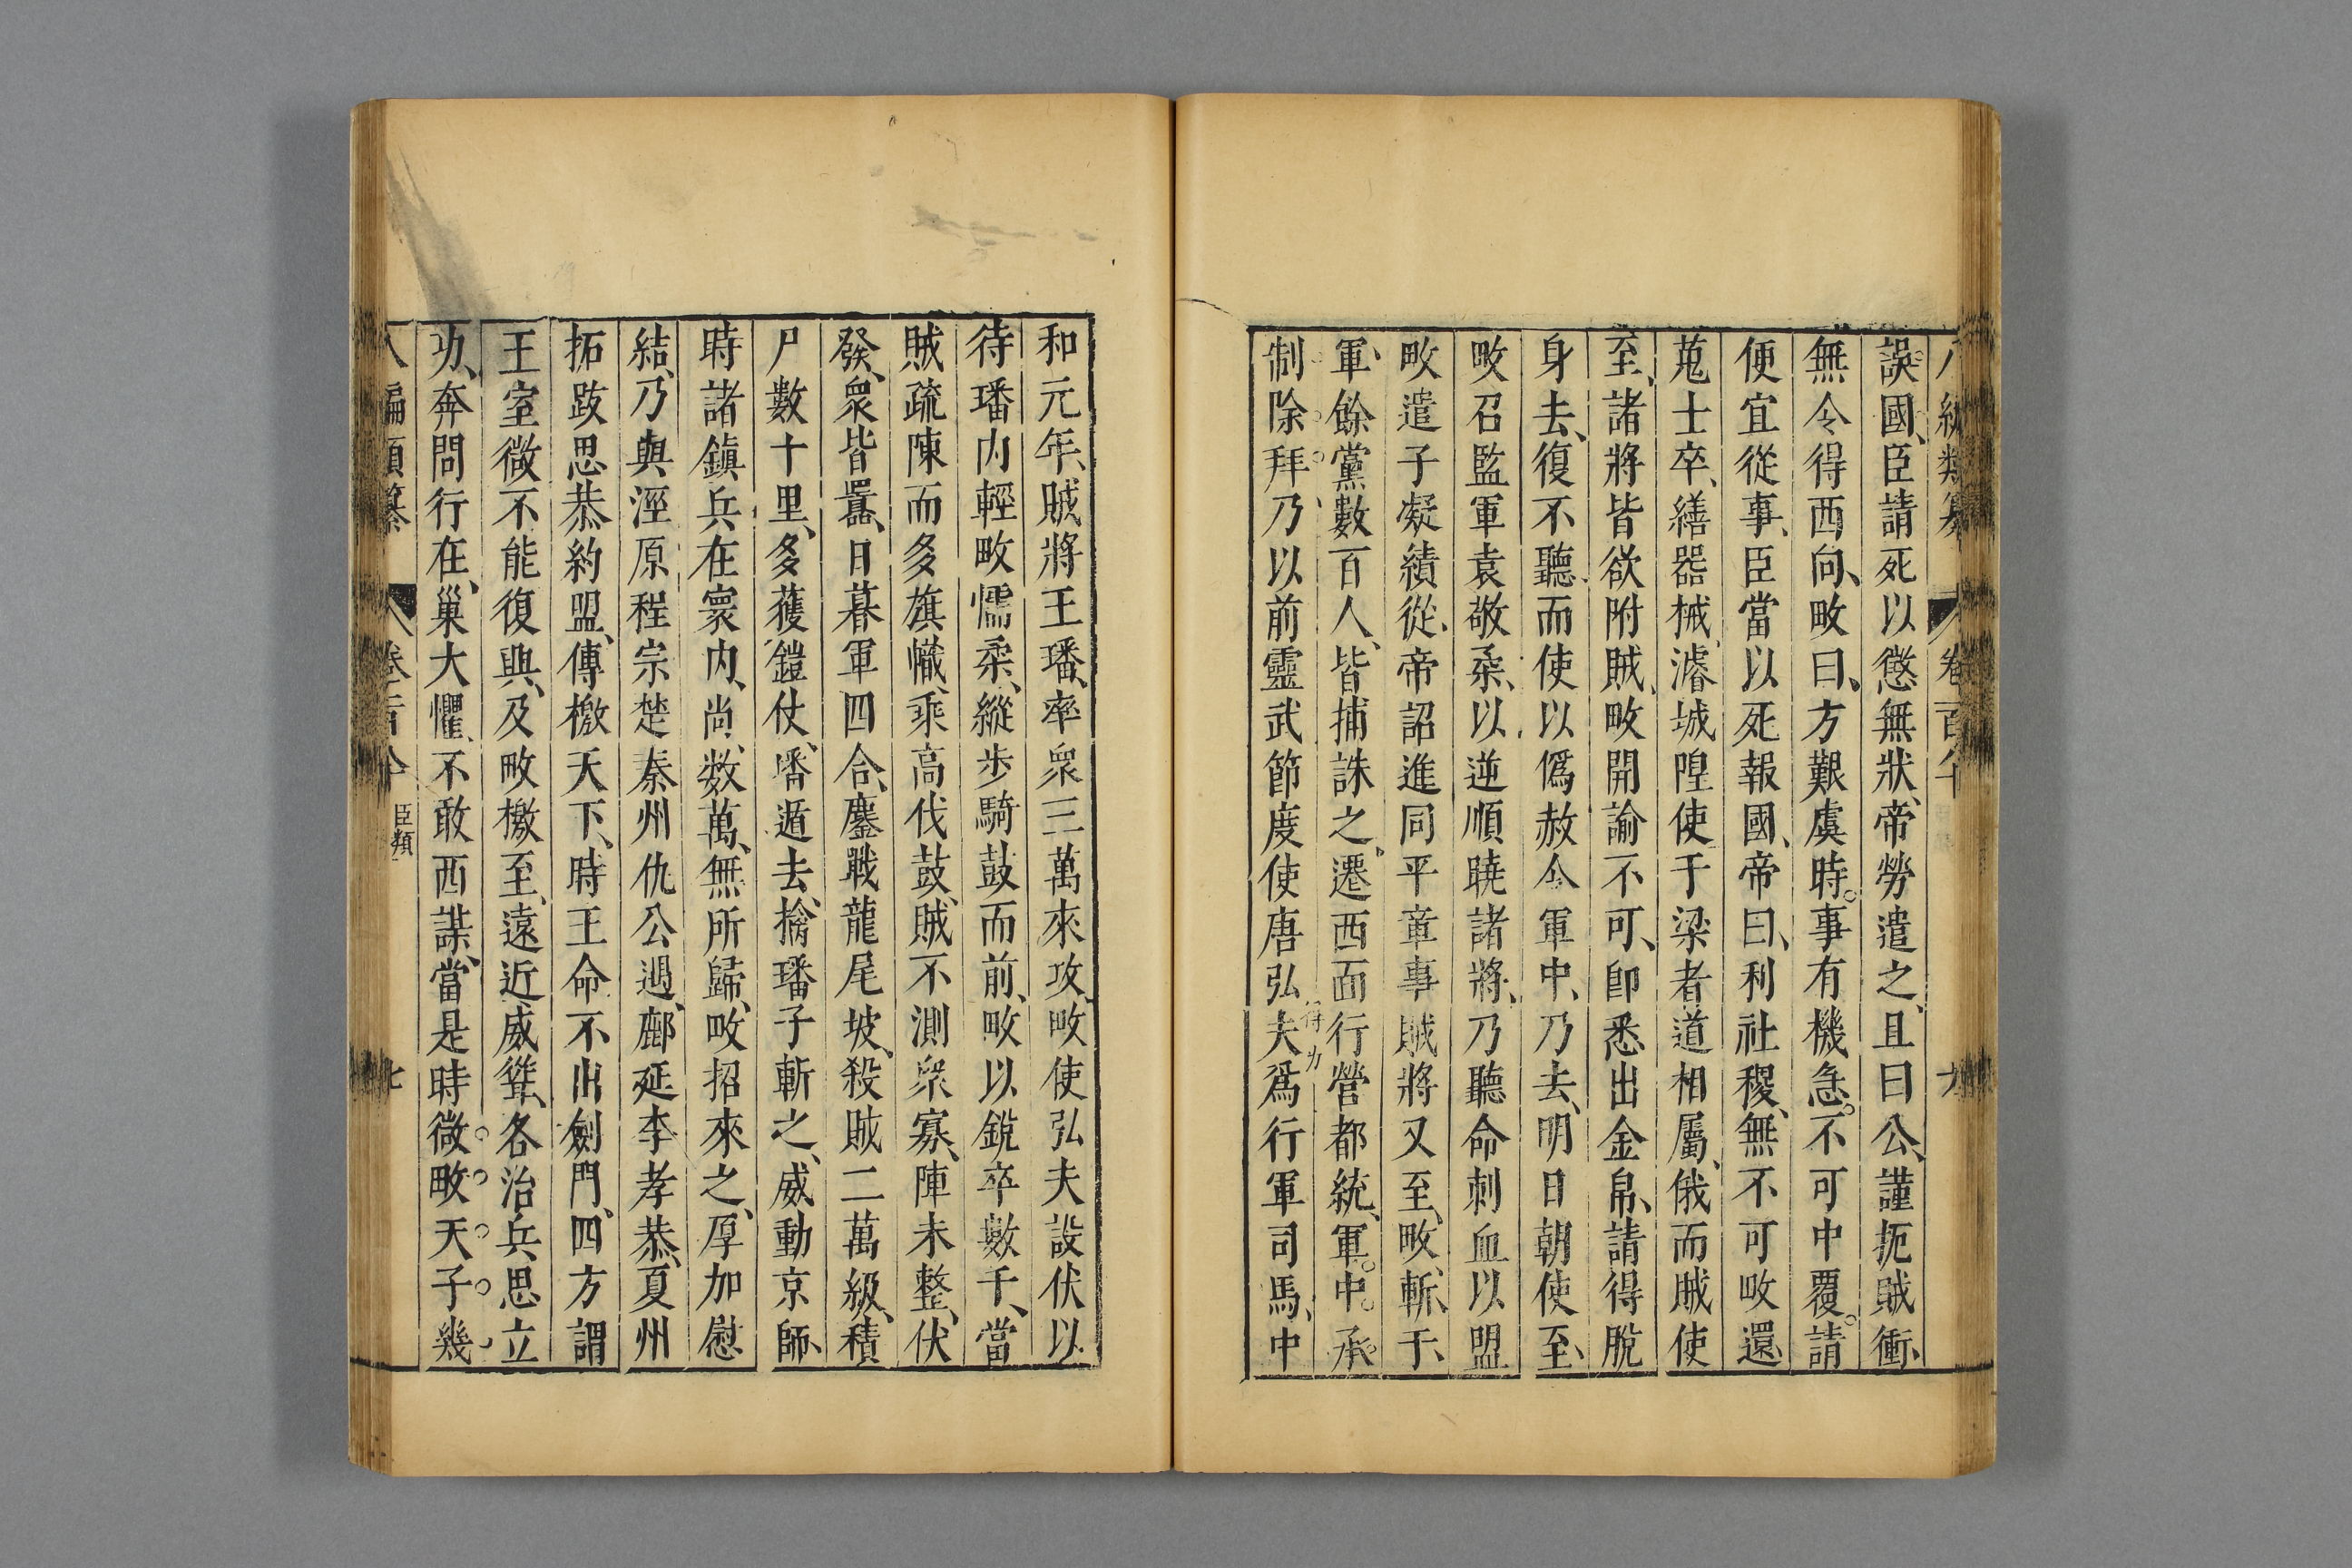 誤國、臣請死以懲無狀、帝勞遣之、且曰公、謹扼賊衝、
無令得西向、畋曰、方艱虞時。事有機急。不可中覆。請
便宜從事、臣當以死報國、帝曰、利社稷、無不可畋還、
蒐士卒、繕器械、濬城隍使于梁者道相屬、俄而賊使
至、諸將皆欲附賊、畋開諭不可、卽悉出金帛、請得脫
身去、復不聽、而使以僞赦令軍中、乃去、明日朝使至、
畋召監軍袁敬柔、以逆順曉諸將、乃聽命刺血以盟
畋遣子凝績從、帝詔進同平章事賊將又至、畋、斬、于、
軍、餘黨數百人、皆捕誅之、遷西面行營都統、軍。中。承。
制。除。拜。乃以前靈武節度使唐弘夫爲行軍司馬、中
和元年、賊將王璠、率衆三萬來攻、畋使弘夫設伏以
待璠內輕畋懦柔、縱步騎鼓而前、畋以銳卒數千、當
賊疏陳而多旗幟、乘高伐鼓、賊不測衆寡、陣未整、伏
發、衆皆囂、日暮軍四合、鏖戰龍尾坡、殺賊二萬級、積
尸數十里、多獲鎧仗、璠遁去、擒璠子斬之、威動京師、
時諸鎮兵在寰內、尚數萬、無所歸、畋招來之、厚加慰
結、乃與涇原程宗楚秦州仇公遇、鄜延李孝恭、夏州
拓跋思恭約盟、傳檄天下、時王命不出劍門、四方謂
王室微不能復興、及畋檄至、遠近威聳、各治兵思立
功、奔問行在、巢大懼、不敢西謀、當是時微。畋。天。子。幾
八編類纂 卷一百八十 臣類 七